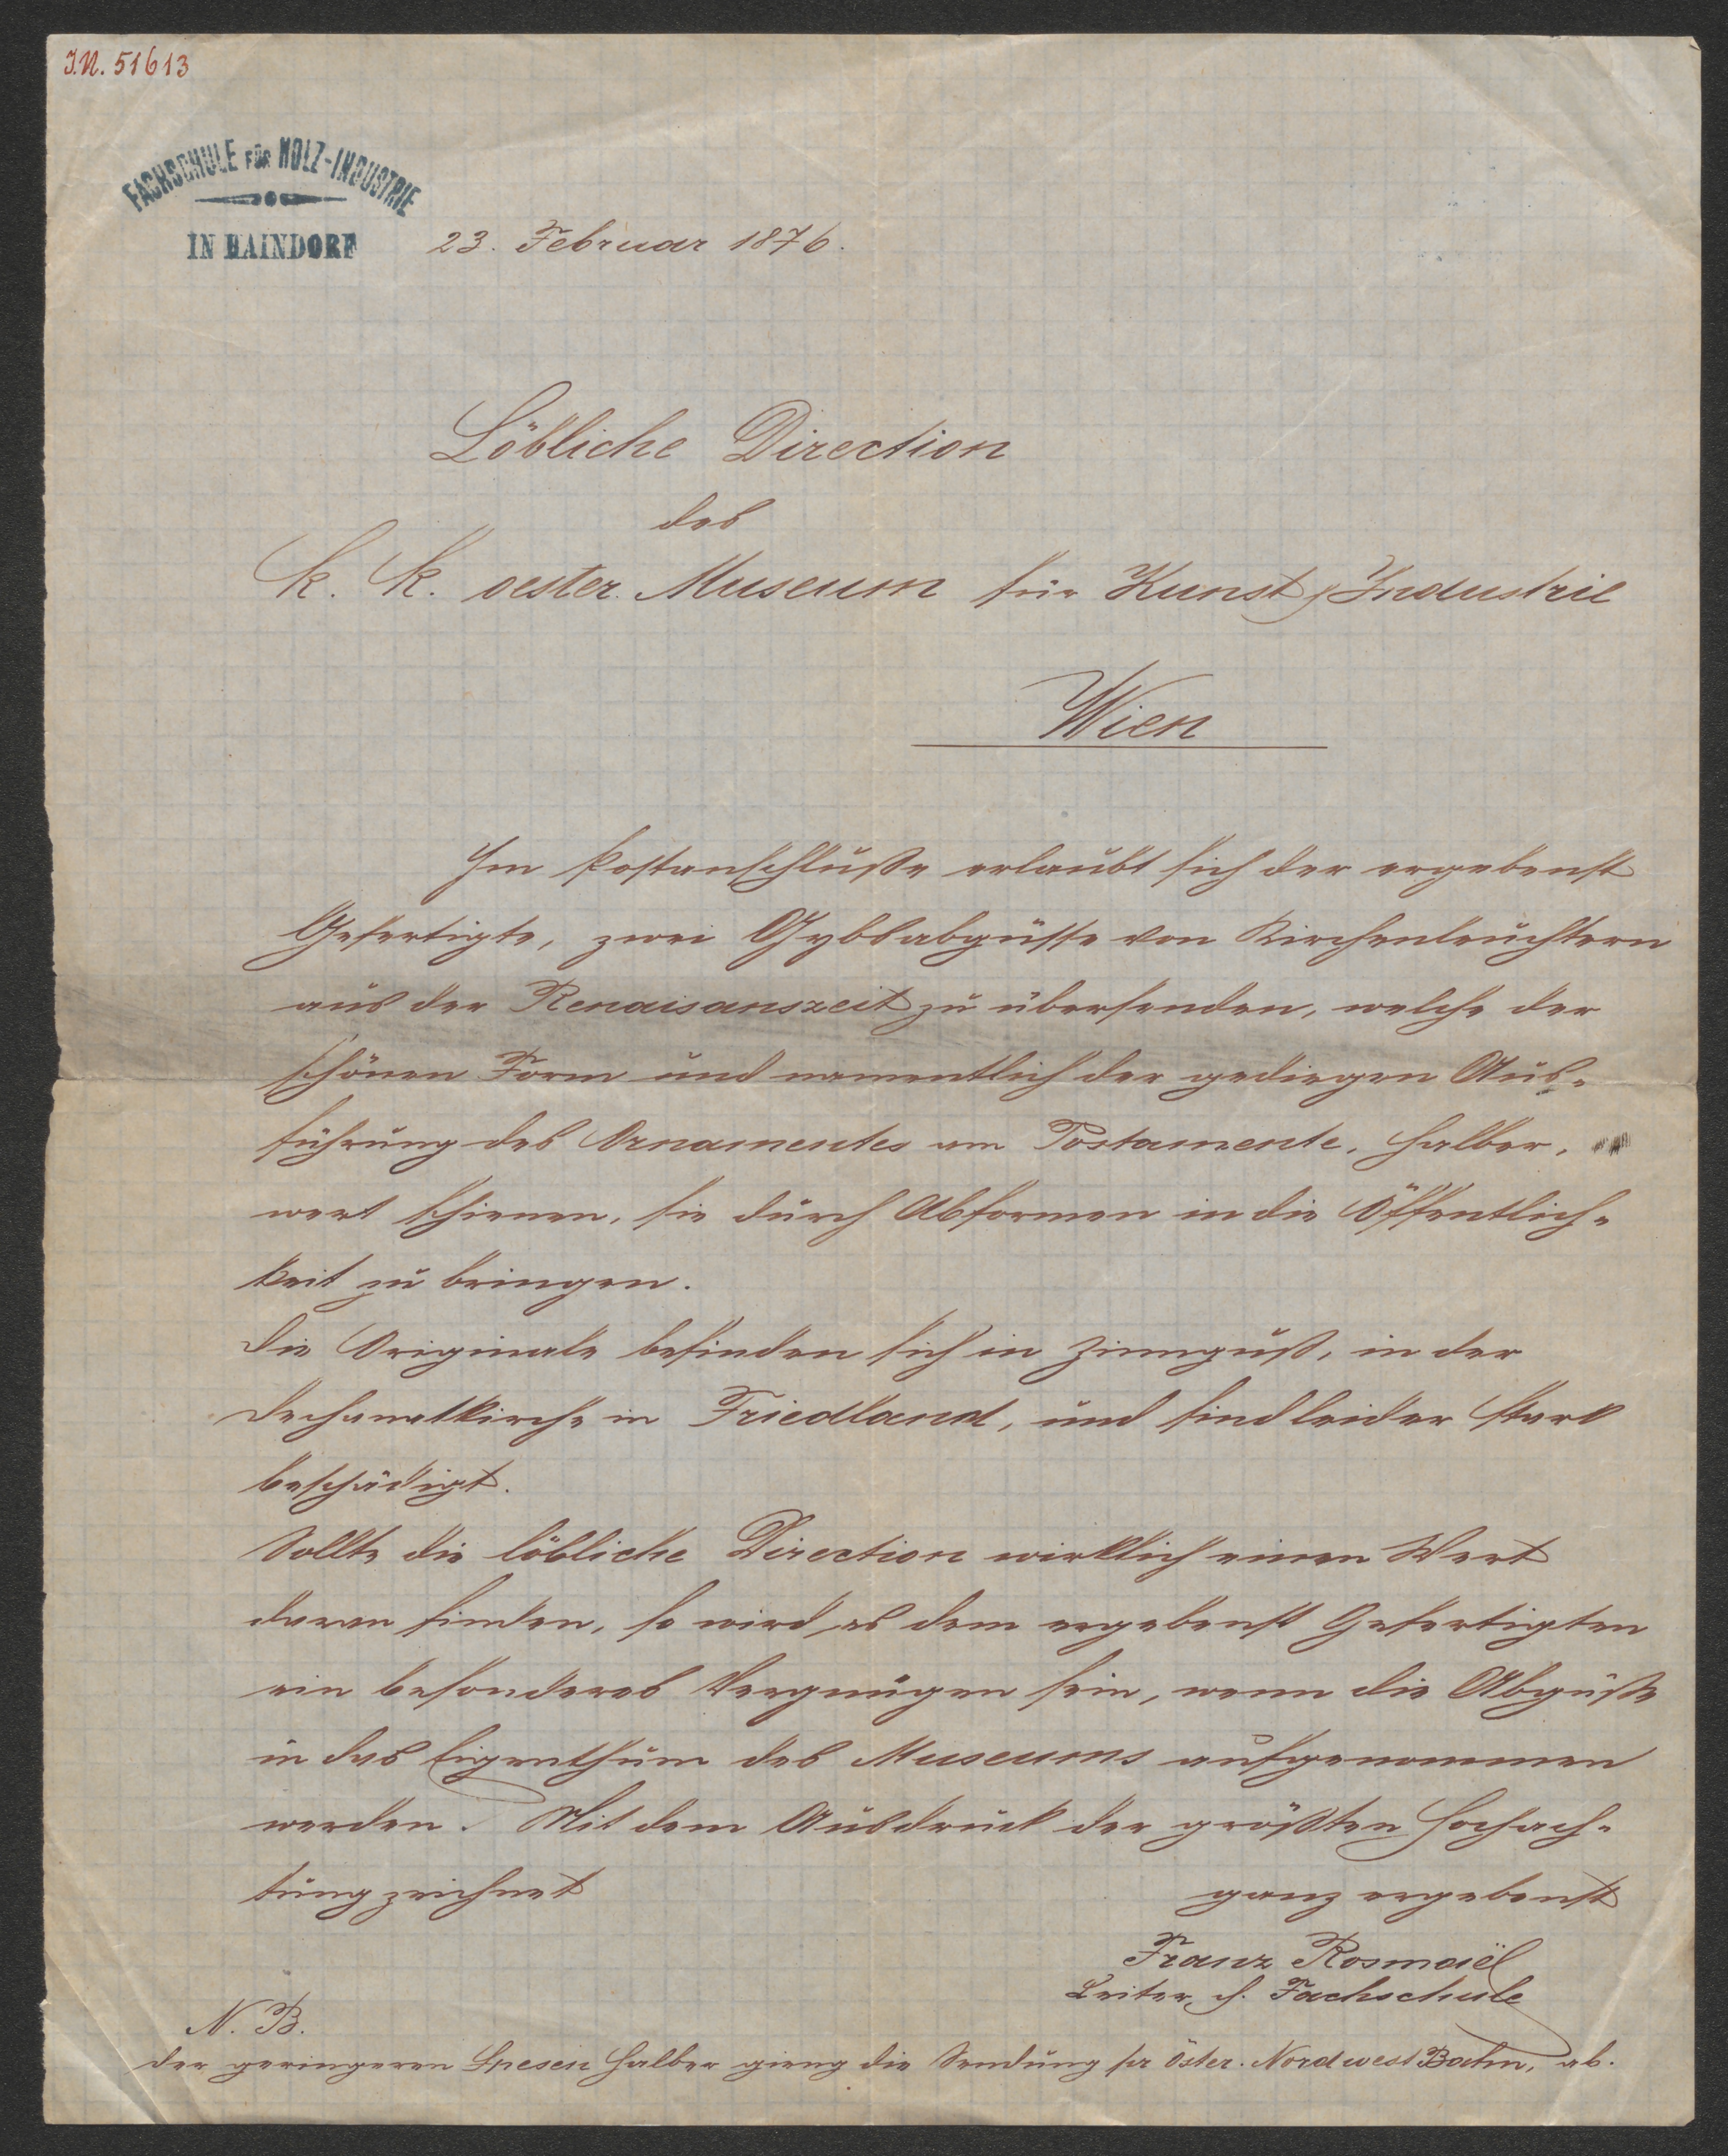 I.N. 51613
FACHSCHULE FÜR HOLZ-INDUSTRIE
IN HAINDORF
23. Februar 1876.
Löbliche Direction
des
k. k. oester. Museum für Kunst & Industrie
Wien
Im Postanschluße erlaubt sich der ergebenst
Gefertigte, zwei Gybsabgüsse von Kirchenleuchtern
aus der Renaisanszeit zu übersenden, welche der
schönen Form und namentlich der gediegen Aus-
führung des Ornamentes am Postamente, halber,
wert schienen, sie durch Abformen in die Öffentlich-
keit zu bringen.
Die Originale befinden sich in Zinnguß, in der
Dechanatkirche in Friedland, und sind leider stark
beschädigt.
Sollte die löbliche Direction wirklich einen Wert
daran finden, so wird es dem ergebenst Gefertigten
ein besonderes Vergnügen sein, wenn die Abgüße
in das Eigenthum des Museums aufgenommen
werden. Mit dem Ausdruck der größten Hochach-
tung zeichnet
ganz ergebenst
Franz Rosmaël
Leiter d. Fachschule
N. B.
Der geringeren Spesen halber gieng die Sendung pr Öster. Nordwest Bahn, ab.